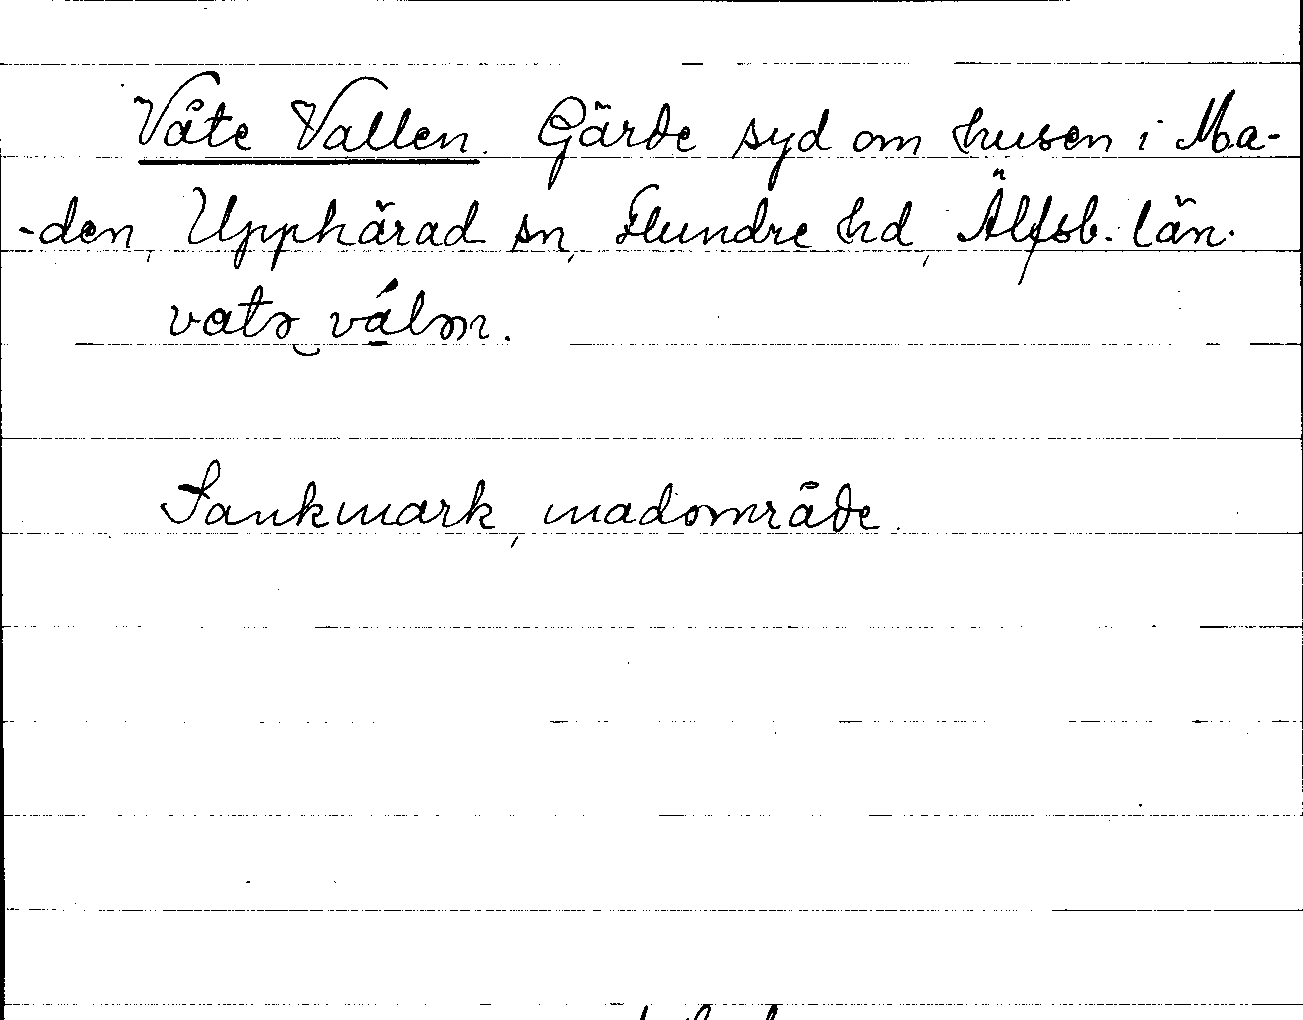 Våte Vallen. Gärde syd om husen i Ma-
-den, Upphärad sn, Flundre hd, Älfsb. län.
Sankmark, madområde.